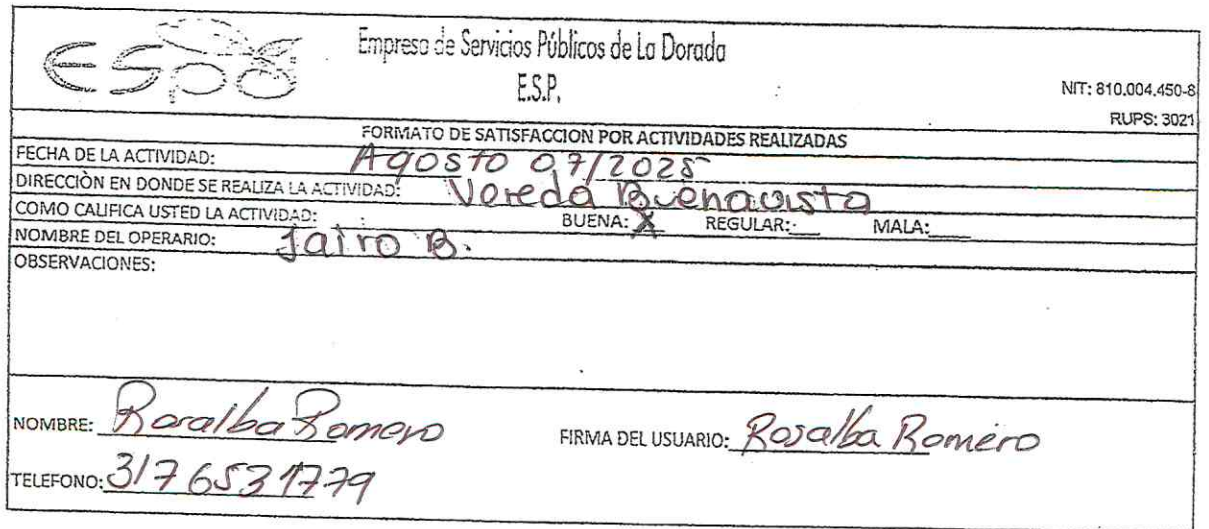 espo
Empresa de Servicios Públicos de La Dorada
E.S.P.
NIT: 810.004.450-8
RUPS: 3021
FORMATO DE SATISFACCION POR ACTIVIDADES REALIZADAS
FECHA DE LA ACTIVIDAD: Agosto 07/2025
DIRECCIÒN EN DONDE SE REALIZA LA ACTIVIDAD: Vereda Buenavista
COMO CALIFICA USTED LA ACTIVIDAD: BUENA: X REGULAR: MALA:
NOMBRE DEL OPERARIO: Jairo B.
OBSERVACIONES:
NOMBRE: Rosalba Romero FIRMA DEL USUARIO: Rosalba Romero
TELEFONO: 3176531779